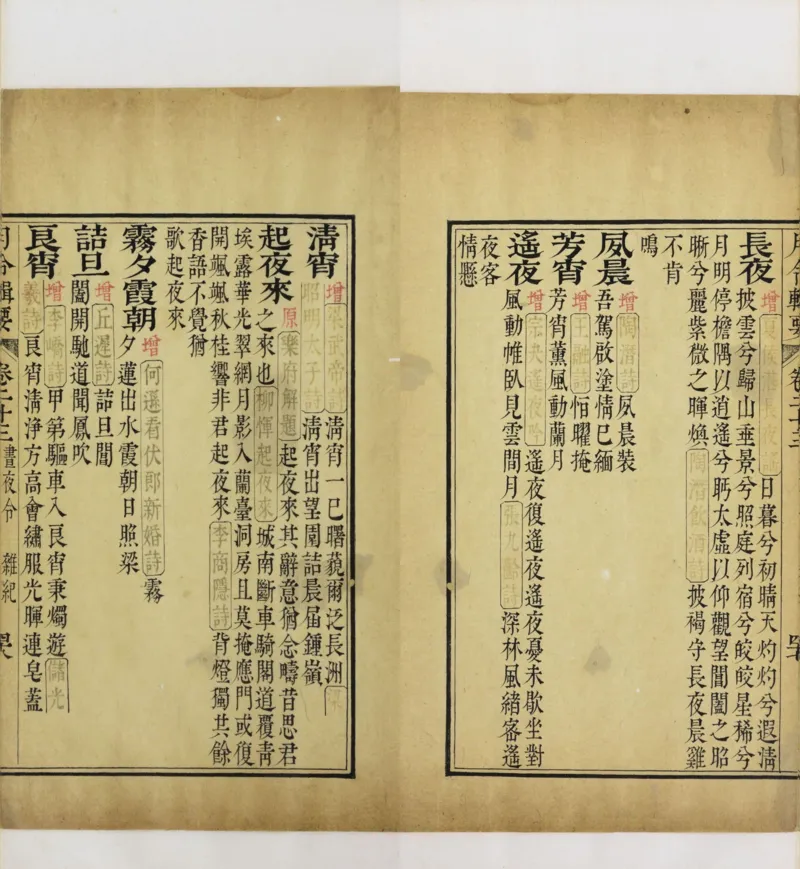 月令輯要 卷二十三
長夜 增
日暮兮初晴天灼灼兮遐清
披雲兮歸山垂景兮照庭列宿兮皎皎星稀兮
月明停檐隅以逍遙兮眄太虛以仰觀望閶闔之昭
晰兮麗紫微之暉煥 陶潛飲酒詩 披褐守長夜晨雞
不肯
鳴
夙晨 增 陶潛詩 夙晨裝
吾駕啟塗情已緬
芳宵 增 王融詩 恒曜掩
芳宵薰風動蘭月
遙夜 增 遙夜吟 遙夜復遙夜遙夜憂未歇坐對
風動帷臥見雲間月 張九齡詩 深林風緒客遙
夜客
情懸
清宵 增 梁武帝 清宵一已曙藐爾泛長洲
昭明太子詩 清宵出望園詰晨屆鍾嶺
起夜來 原 樂府解題 起夜來其辭意猶念疇昔思君
之來也 柳惲起夜來 城南斷車騎閣道覆青
埃露華光翠網月影入蘭臺洞房且莫掩應門或復
開颯颯秋桂響非君起夜來 李商隱詩 背燈獨共餘
香語不覺猶
歌起夜來
霧夕霞朝 增 何遜看伏郎新婚詩 霧
夕蓮出水霞朝日照梁
詰旦 增 丘遲詩 詰旦閶
闔開馳道聞鳳吹
良宵 增 李嶠詩 甲第驅車入良宵秉燭遊 儲光
羲詩 良宵清淨方高會繡服光暉連皂蓋
月令輯要 卷二十三 晝夜令 雜紀